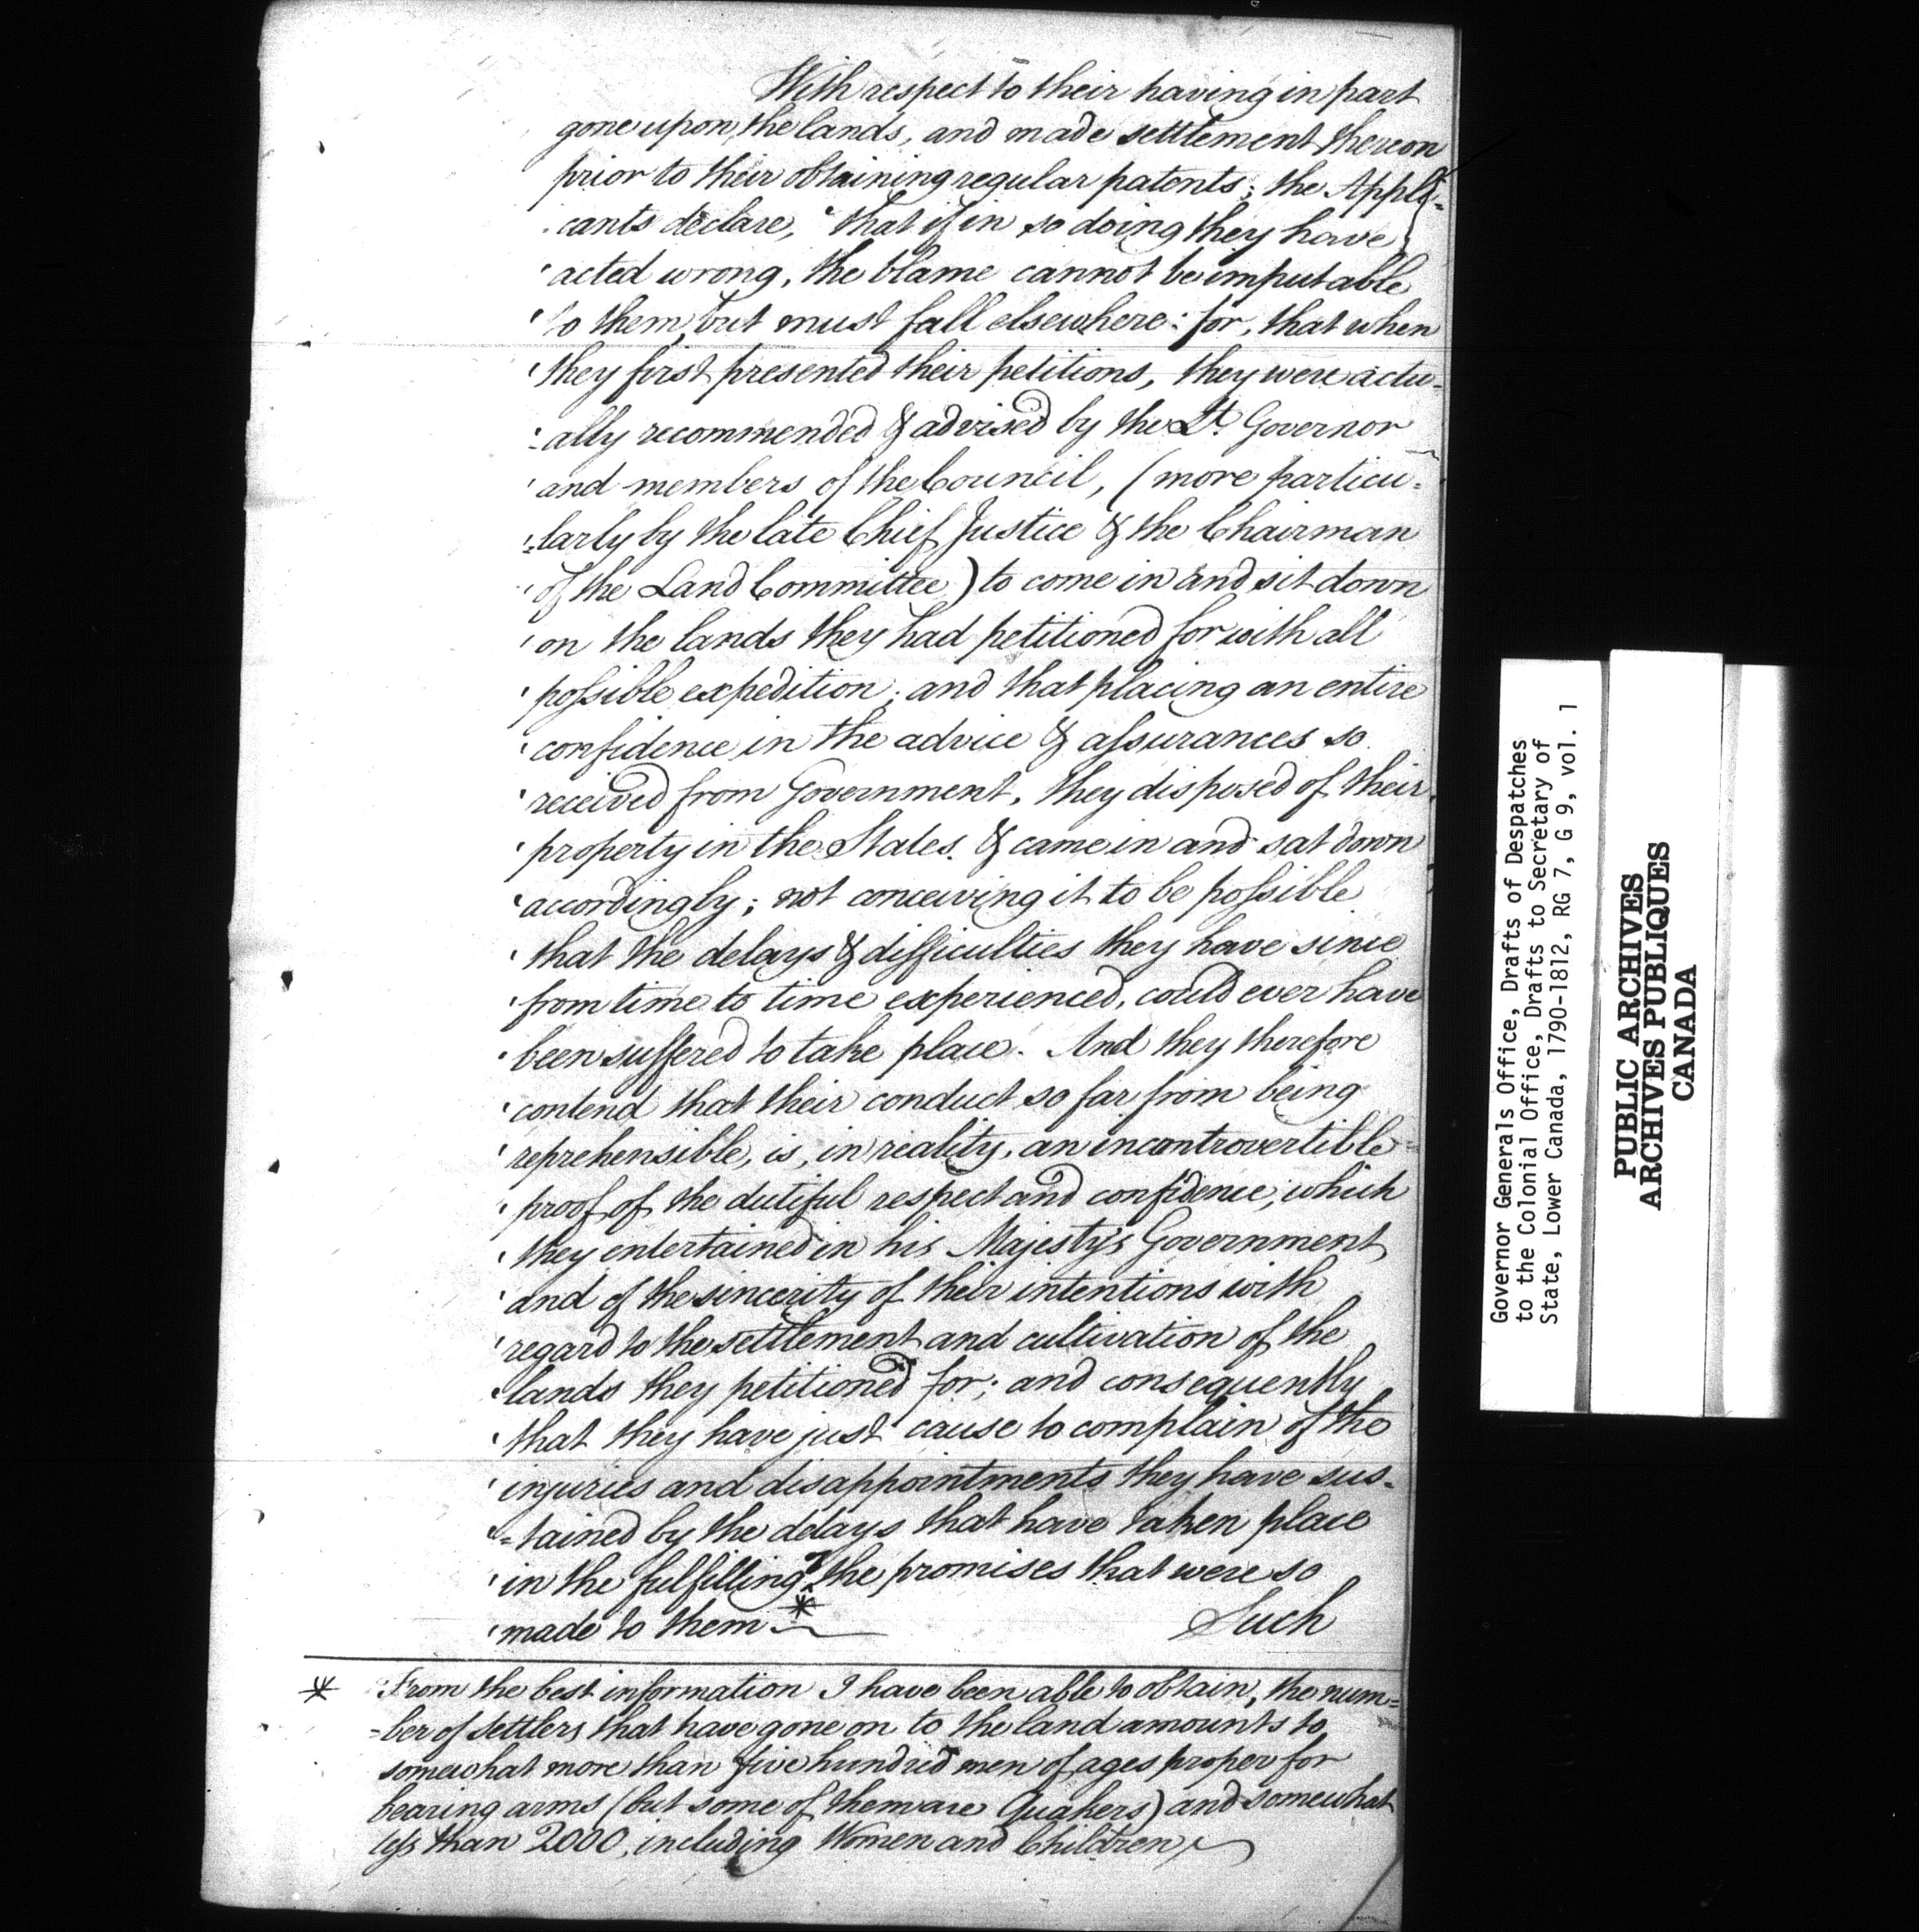 With respect to their having in part
gone upon the lands, and made settlement thereon
prior to their obtaining regular patents; the Appli-
cants declare, "that if in so doing they have
'acted wrong, the blame cannot be imputable
'to them, but must fall elsewhere: for, that when
'they first presented their petitions, they were actu-
=ally recommended & advised by the Lt. Governor
'and members of the Council, (more particu-
'=larly by the late Chief Justice & the Chairman
'of the Land Committee) to come in and sit down
'on the lands they had petitioned for with all
'possible expedition; and that placing an entire
'confidence in the advice & assurances so
'received from Government, they disposed of their
'property in the States. & came in and sat down
'accordingly; not conceiving it to be possible
'that the delays & difficulties they have since
'from time to time experienced, could ever have
'been suffered to take place. And they therefore
'contend that their conduct so far from being
'reprehensible, is, in reality, an incontrovertible
'proof of the dutiful respect and confidence, which
'they entertained in his Majesty's Government
'and of the sincerity of their intentions with
'regard to the settlement and cultivation of the
'lands they petitioned for; and consequently
'that they have just cause to complain of the
'injuries and disappointments they have sus-
'=tained by the delays that have taken place
'in the fulfilling of the promises that were so
'made to them *
Such
* From the best information I have been able to obtain, the num=
=ber of settlers that have gone on to the land amounts to
somewhat more than five hundred men of ages proper for
bearing arms (but some of them are Quakers) and somewhat
less than 2000, including Women and Children
Governor Generals Office, Drafts of Despatches
to the Colonial Office, Drafts to Secretary of
State, Lower Canada, 1790-1812, RG 7, G 9, vol. 1
PUBLIC ARCHIVES
ARCHIVES PUBLIQUES
CANADA